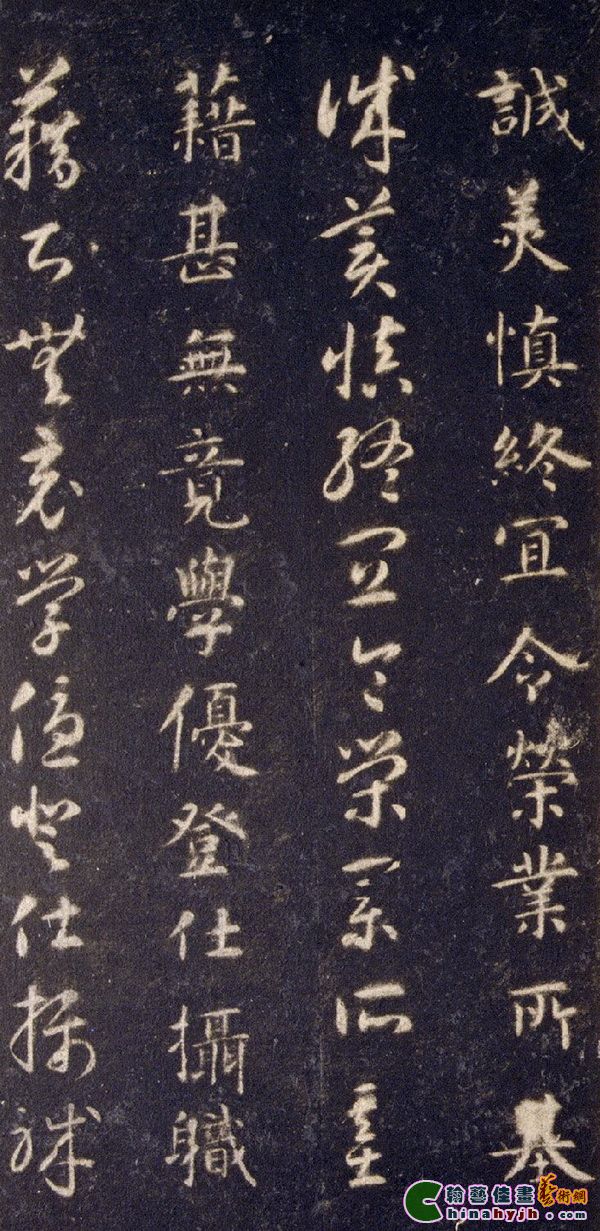 誠美慎終宜令榮業所基
誠美慎終宜令榮業所基
藉甚無竟學優登仕攝職
藉甚無竟學優登仕攝職
翰藝佳畫藝術網
Chinahyjh.com